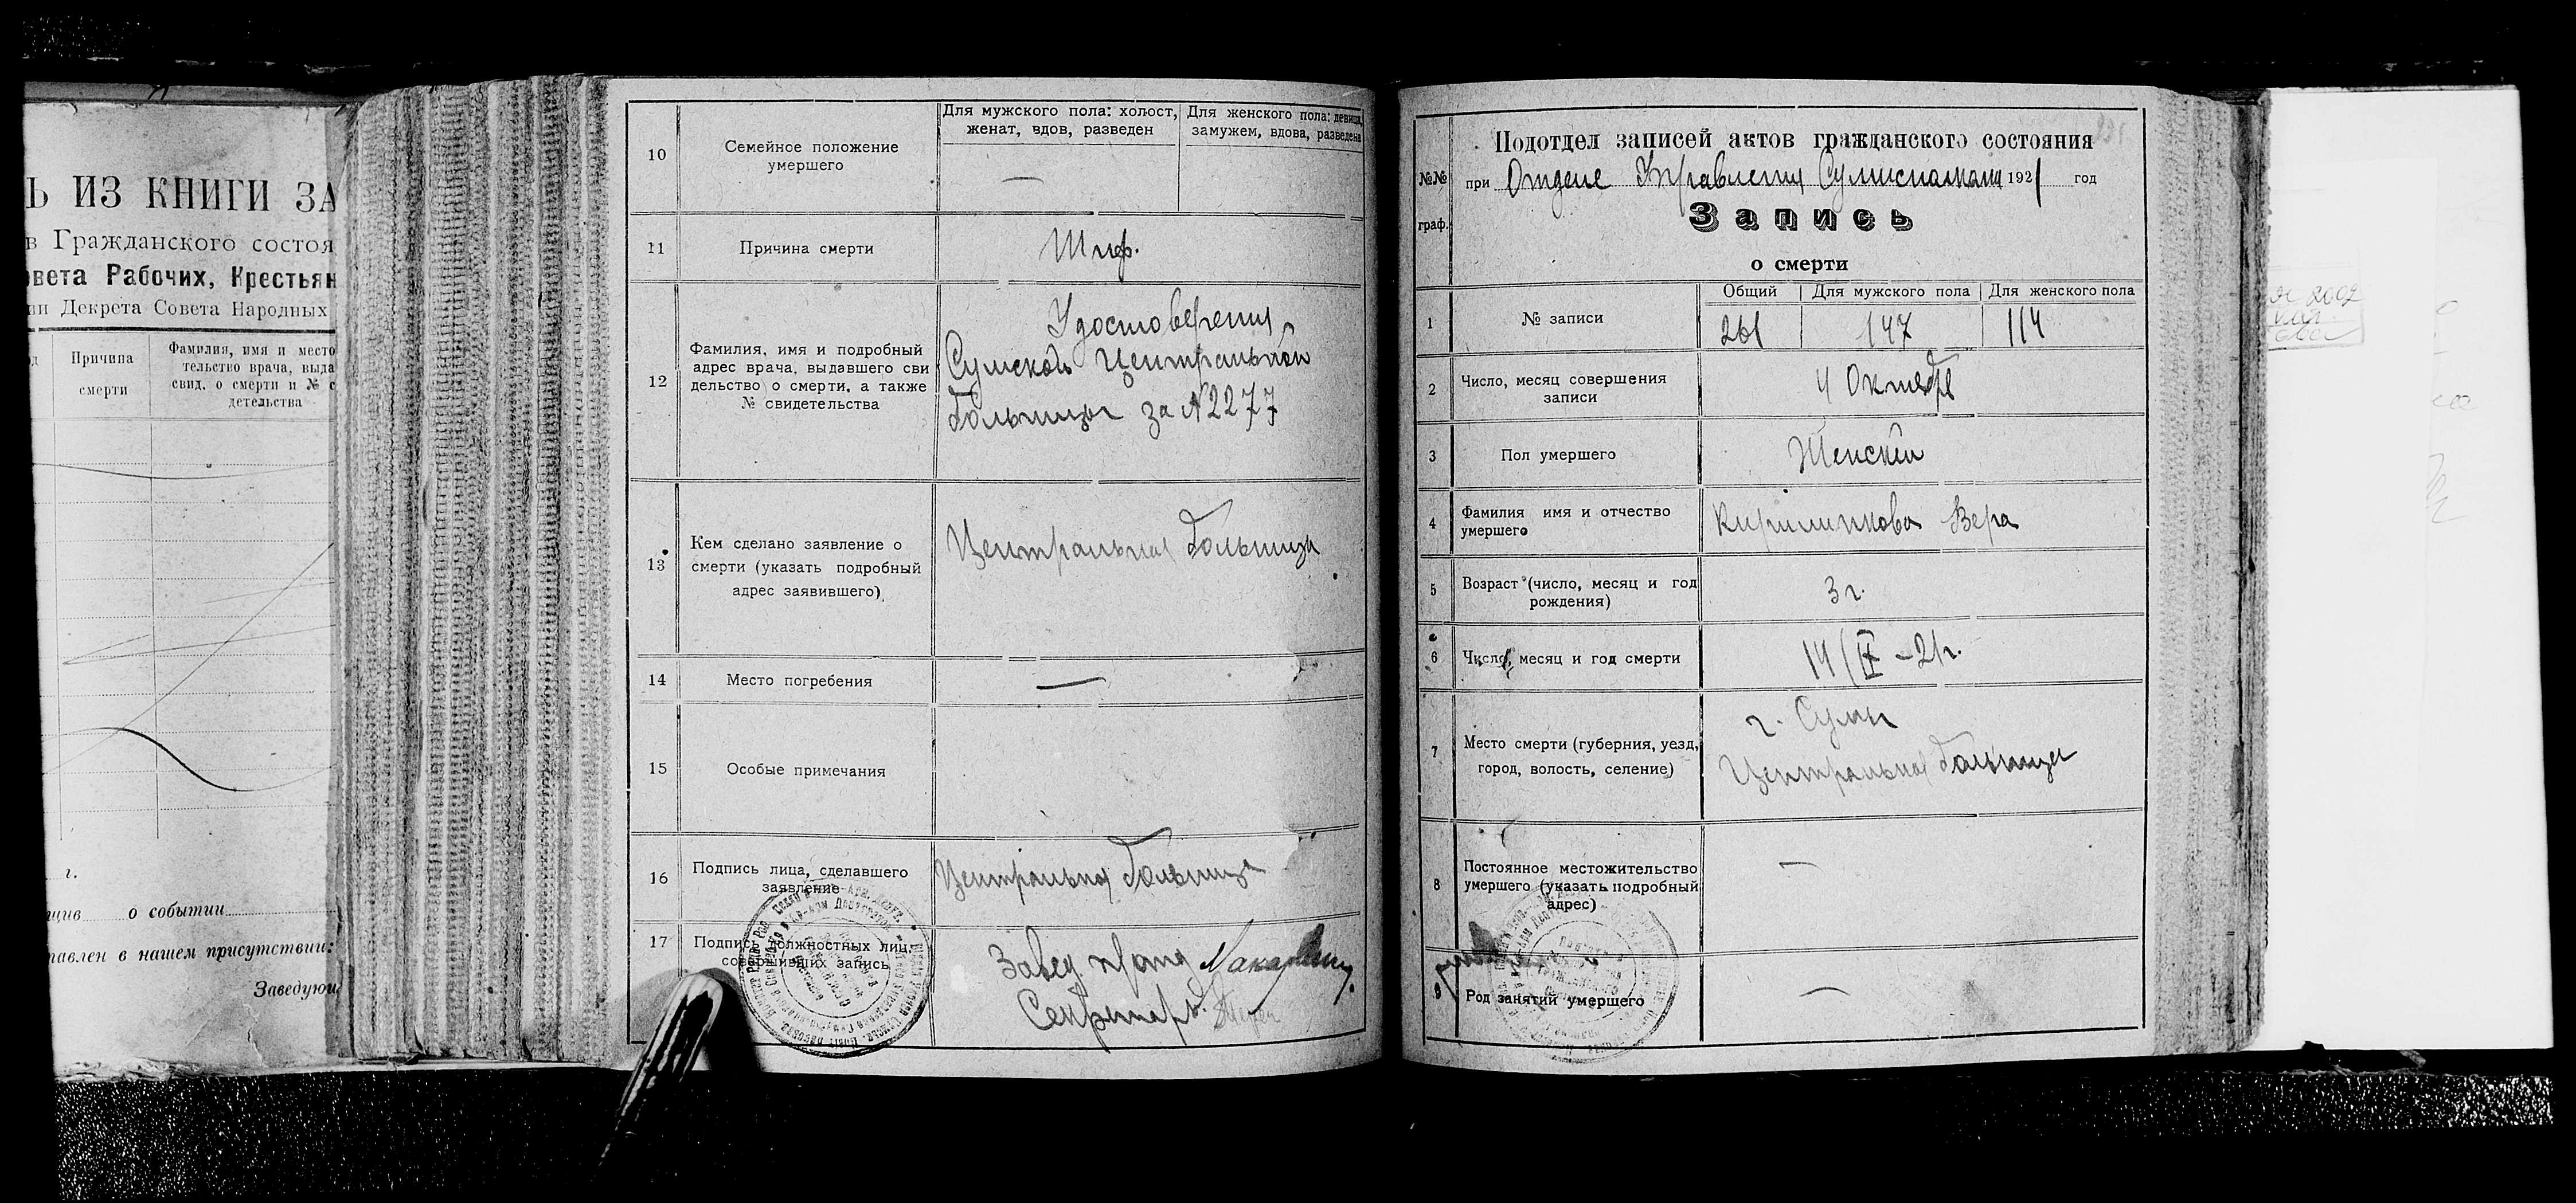 Ь ИЗ КНИГИ ЗА
в Гражданского состоя
овета Рабочих, Крестьян
ии Декрета Совета Народных
Причина
смерти
Фамилия, имя и место
тельство врача, выда
свид. о смерти и № с
детельства
г.
о событии
тавлен в нашем присутствии:
Заведую
10
Семейное положение
умершего
Для мужского пола: холост,
женат, вдов, разведен
Для женского пола: девица,
замужем, вдова, разведена
—
11
Причина смерти
Тиф.
12
Фамилия, имя и подробный
адрес врача, выдавшего сви
дельство о смерти, а также
№ свидетельства
Удостоверения
Сумской Центральной
больницы за №2277
13
Кем сделано заявление о
смерти (указать подробный
адрес заявившего)
Центральная больница
14
Место погребения
—
15
Особые примечания
16
Подпись лица, сделавшего
заявление
Центральная больница
17
Подпись должностных лиц,
совершивших запись
Завед.
Секретарь
№№
граф.
Подотдел записей актов гражданского состояния
при Отделе Управления 1921 год
Запись
о смерти
1
№ записи
Общий
Для мужского пола
Для женского пола
261
147
114
2
Число, месяц совершения
записи
4 Октябр
3
Пол умершего
Женский
4
Фамилия имя и отчество
умершего
Вера
5
Возраст (число, месяц и год
рождения)
3 г.
6
Число, месяц и год смерти
14/IX – 21 г.
7
Место смерти (губерния, уезд,
город, волость, селение)
г. Сумы
Центральная больница
8
Постоянное местожительство
умершего (указать подробный
адрес)
—
9
Род занятий умершего
—